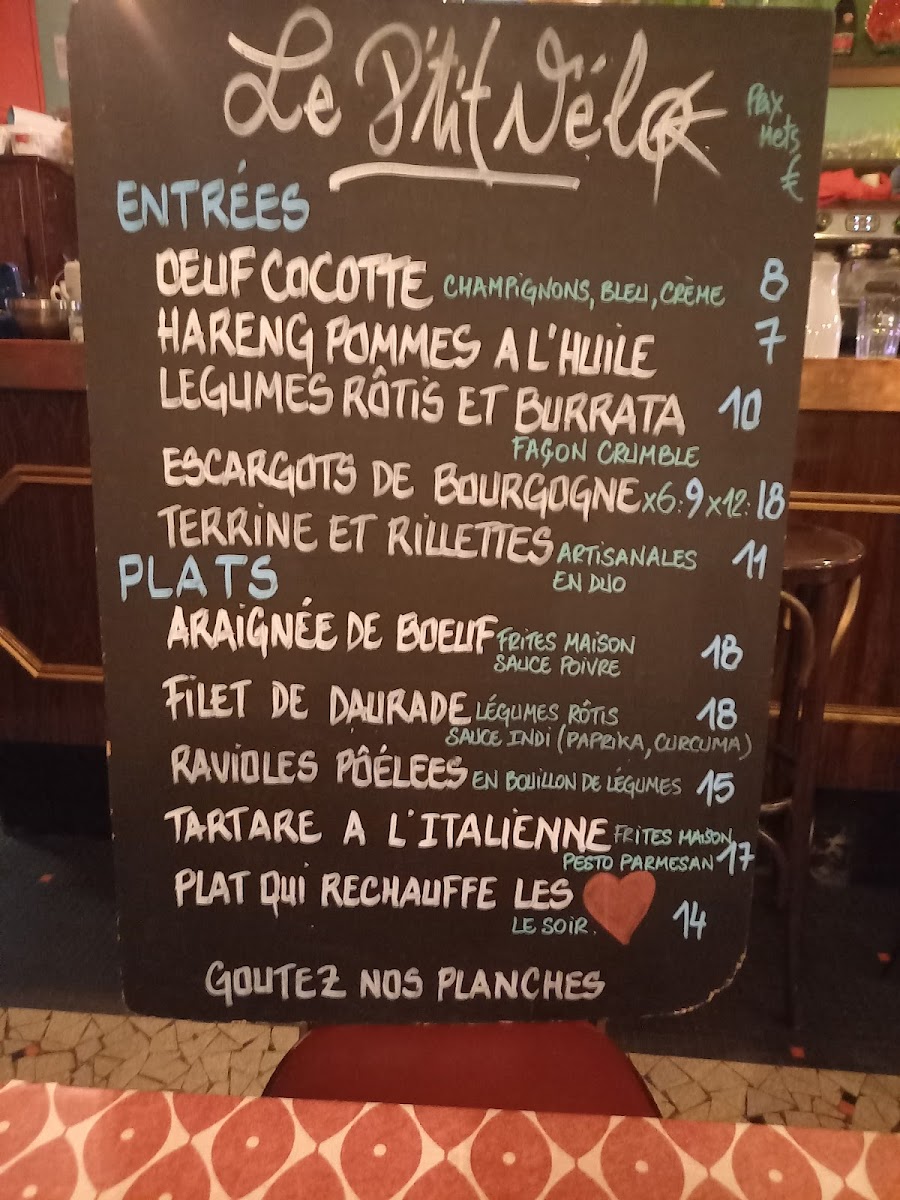 Le P'tit Vélo
ENTRÉES
OEUF COCOTTE CHAMPIGNONS, BLEU, CRÈME 8
HARENG POMMES A L'HUILE 7
LEGUMES RÔTIS ET BURRATA 10
FAÇON CRUMBLE
ESCARGOTS DE BOURGOGNE x6: 9 x12: 18
TERRINE ET RILLETTES ARTISANALES 11
EN DUO
PLATS
ARAIGNÉE DE BOEUF FRITES MAISON 18
SAUCE POIVRE
FILET DE DAURADE LÉGUMES RÔTIS 18
SAUCE INDI (PAPRIKA, CURCUMA)
RAVIOLES PÔÉLEES EN BOUILLON DE LÉGUMES 15
TARTARE A L'ITALIENNE FRITES MAISON
PESTO PARMESAN 17
PLAT QUI RECHAUFFE LES
LE SOIR. 14
GOUTEZ NOS PLANCHES